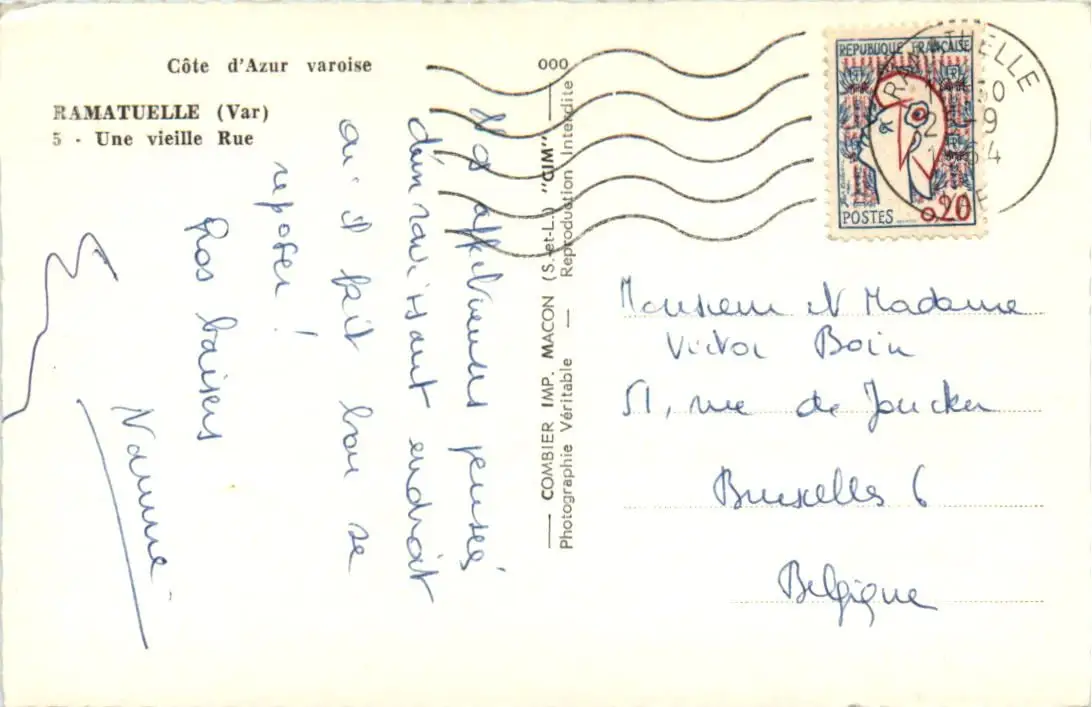 Côte d'Azur varoise
RAMATUELLE (Var)
5 - Une vieille Rue
Nos affectueuses pensées
d'un ravissant endroit
où il fait bon se
reposer !
Gros baisers
— COMBIER IMP. MACON (S.-et-L.) "CIM" —
Photographie Véritable — Reproduction Interdite
000
REPUBLIQUE FRANÇAISE
POSTES
0,20
RAMATUELLE
Monsieur et Madame
Victor Boin
51, rue de Joncker
Bruxelles 6
Belgique